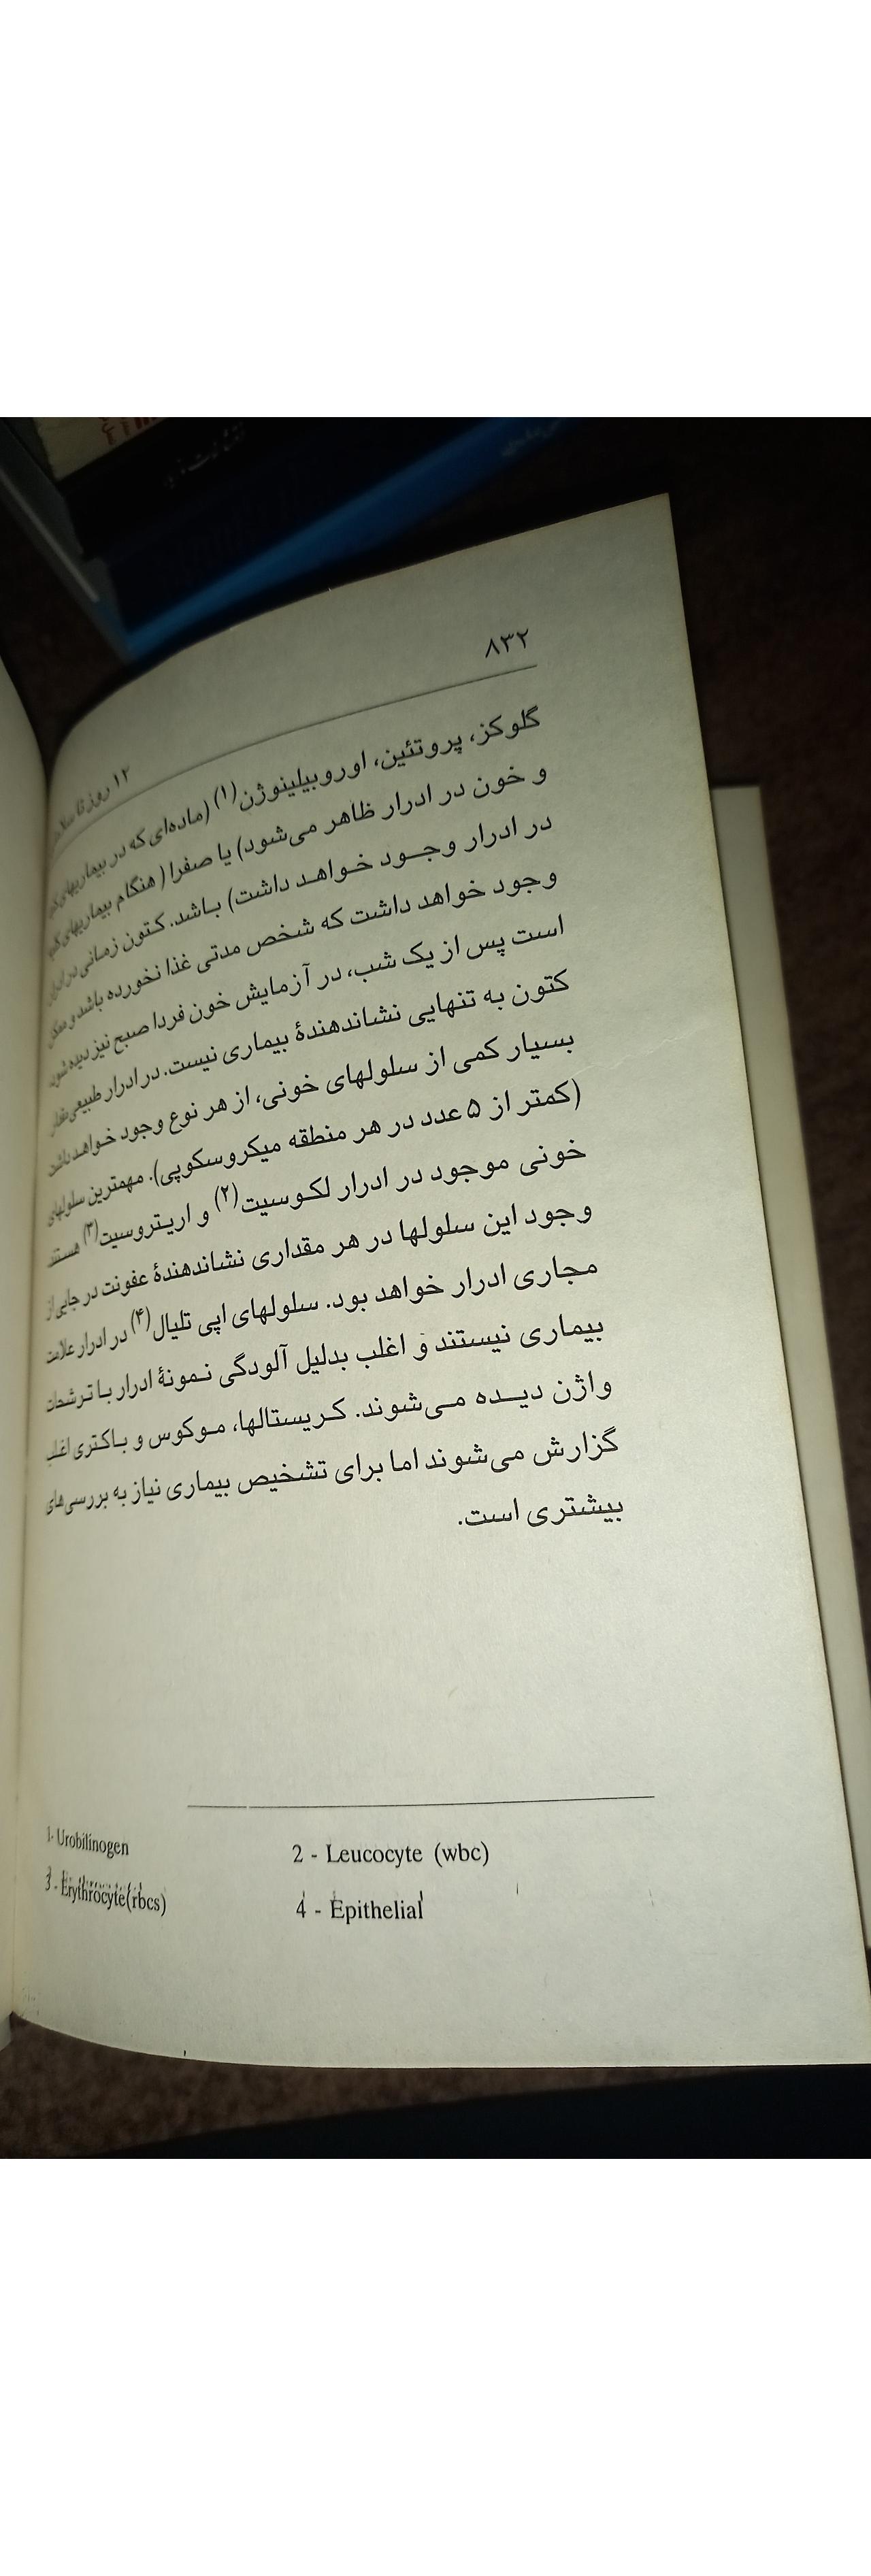 ۸۳۲
۱۲ روز تا
گلوکز، پروتئین، اوروبیلینوژن(۱) (ماده‌ای که در بیماریهای کبد
و خون در ادرار ظاهر می‌شود) یا صفرا (هنگام بیماریهای کبد
در ادرار وجود خواهد داشت) باشد. کتون زمانی در ادرار
وجود خواهد داشت که شخص مدتی غذا نخورده باشد و ممکن
است پس از یک شب، در آزمایش خون فردا صبح نیز دیده شود.
کتون به تنهایی نشاندهندۀ بیماری نیست. در ادرار طبیعی مقدار
بسیار کمی از سلولهای خونی، از هر نوع وجود خواهد داشت
(کمتر از ۵ عدد در هر منطقه میکروسکوپی). مهمترین سلولهای
خونی موجود در ادرار لکوسیت(۲) و اریتروسیت(۳) هستند
وجود این سلولها در هر مقداری نشاندهندۀ عفونت در جایی از
مجاری ادرار خواهد بود. سلولهای اپی تلیال(۴) در ادرار علامت
بیماری نیستند و اغلب بدلیل آلودگی نمونۀ ادرار با ترشحات
واژن دیده می‌شوند. کریستالها، موکوس و باکتری اغلب
گزارش می‌شوند اما برای تشخیص بیماری نیاز به بررسی‌های
بیشتری است.
1- Urobilinogen 2 - Leucocyte (wbc)
3 - Erythrocyte(rbcs) 4 - Epithelial